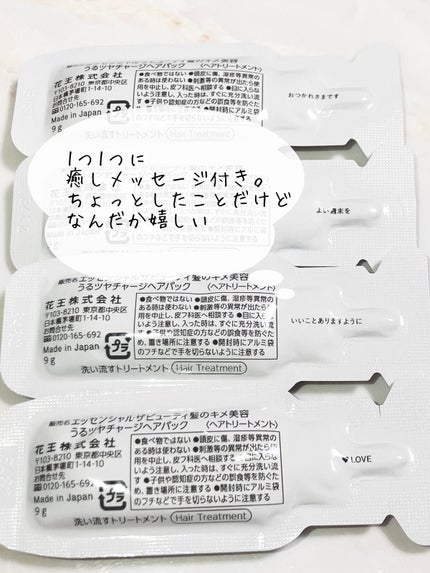 うるツヤチャージヘアパック 〈ヘアトリートメント〉
花王株式会社
〒103-8210 東京都中央区
日本橋茅場町1-14-10
お問合せ先
0120-165-692
Made in Japan
9g
洗い流すトリートメント Hair Treatment
●食べ物ではない ●頭皮に傷、湿疹等異常の
ある時は使わない ●刺激等の異常が出たら使
用を中止し、皮フ科医へ相談する ●目に入らな
いよう注意し、入った時は、すぐに充分洗い流
す ●子供や認知症の方などの誤食等を防ぐた
プラ
おつかれさまです
1つ1つに
癒しメッセージ付き。
ちょっとしたことだけど
なんだか嬉しい
よい週末を
販売名エッセンシャルザビューティ髪のキメ美容
うるツヤチャージヘアパック 〈ヘアトリートメント〉
花王株式会社
〒103-8210 東京都中央区
日本橋茅場町1-14-10
お問合せ先
0120-165-692
Made in Japan
9g
プラ
●食べ物ではない ●頭皮に傷、湿疹等異常の
ある時は使わない ●刺激等の異常が出たら使
用を中止し、皮フ科医へ相談する ●目に入ら
ないよう注意し、入った時は、すぐに充分洗い流
す ●子供や認知症の方などの誤食等を防ぐた
め、置き場所に注意する ●開封時にアルミ袋
のフチなどで手を切らないように注意する
洗い流すトリートメント Hair Treatment
いいことありますように
販売名エッセンシャルザビューティ髪のキメ美容
うるツヤチャージヘアパック 〈ヘアトリートメント〉
花王株式会社
〒103-8210 東京都中央区
日本橋茅場町1-14-10
お問合せ先
0120-165-692
Made in Japan
9g
プラ
●食べ物ではない ●頭皮に傷、湿疹等異常の
ある時は使わない ●刺激等の異常が出たら使
用を中止し、皮フ科医へ相談する ●目に入らな
いよう注意し、入った時は、すぐに充分洗い流
す ●子供や認知症の方などの誤食等を防ぐた
め、置き場所に注意する ●開封時にアルミ袋
のフチなどで手を切らないように注意する
洗い流すトリートメント Hair Treatment
♥LOVE